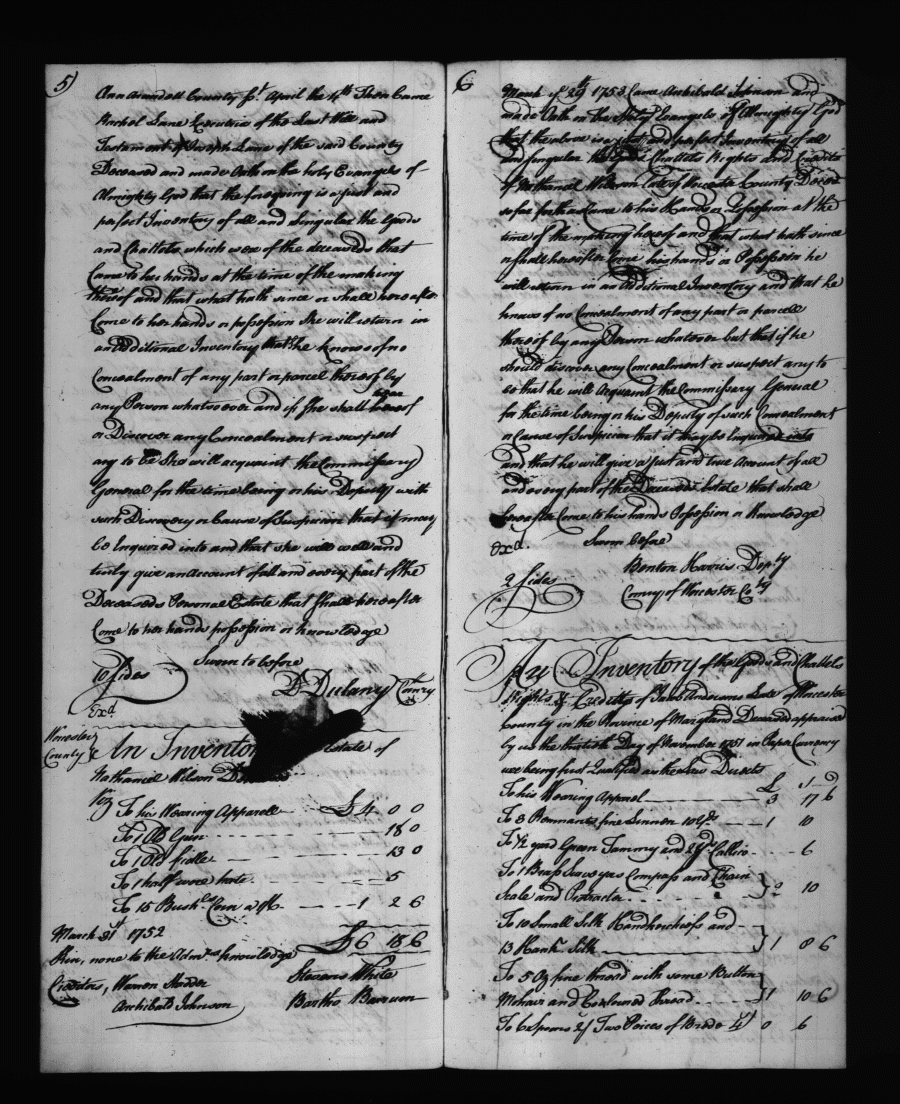 5)
Ann Arundell County Sst. April the 4th Then Came
Rachel Lane Executrix of the Last Will and
Testament of Joseph Lane of the said County
Deceased and made Oath on the holy Evangels of
Almighty God that the foregoing is a just and
perfect Inventory of all and Singular the Goods
and Chattels which were of the deceaseds that
Came to her hands at the time of the making
thereof and that what hath since or shall hereafter
Come to her hands or possession She will return in
an Additional Inventory that She knows of no
Concealment of any part or parcel thereof by
any Person whatsoever and if She shall hereaf
or Discover any Concealment or suspect
any to be She will acquaint the Commissary
General for the time being or his Deputy with
such Discovery or Cause of Suspicion that it may
be Enquired into and that she will well and
truly give an Account of all and every part of the
Deceaseds Personal Estate that Shall hereafter
Come to her hands possession or knowledge
Sworn to before
10 Sides
D Dulany Comry
Exd
Worcester
County &
An Inventory Estate of
Nathaniel Wilson
Viz
To his Wearing Apparell £4 0 0
To 1 Old Gun 18 0
To 1 Old fiddle 13 0
To 1 half wore hatt 5
To 15 Bushs Corn 1 2 6
March 31st 1752 £6 18 6
Kin, none to the Admrs knowledge
Creditors, Warren Hadder Stevens White
Archibald Johnson Bartho
6
March ye 29th 1753 Came Archibald Johnson and
made Oath on the Holy Evangels of Almighty God
that the above is a just and perfect Inventory of all
and singular the Goods Chattels Rights and Credits
of Nathaniel Wilson Late of Worcester County Deced
so far forth as Came to his Hands or Possession at the
time of the making hereof and that what hath since
or shall hereafter Come his hands or Possession he
will return in an Additional Inventory and that he
knows of no Concealment of any part or parcell
thereof by any Person whatever but that if he
should discover any Concealment or suspect any to
be that he will Acquaint the Commissary General
for the time being or his Deputy of such Concealment
or Cause of Suspicion that it may be Enquired into
and that he will give a just and true Account of all
and every part of the Deceaseds Estate that shall
hereafter Come to his hands Possession or Knowledge
Exd. Sworn before
Benton Harris Depty
2 Sides
Comry of Worcester Coty
An Inventory of the Goods and Chattels
Rights & Creditts of James Anderson Late of Worcester
County in the Province of Maryland Deceased appraised
by us the Day of November 1751 in Paper Currency
we being first Qualified as the Law Directs
£ S D
To his Wearing Apparel 3 17 6
To 3 Remnants fine Linnen 1 10
To 1/2 yard Green Tammy and 2 Yds Callico 6
To 1 Brass Surveyors Compass and Chain
Scale and Protractor 2 10
To 10 Small Silk Handkerchiefs and
13 Hanks Silk 1 8 6
To 5 Oz fine thread with some Button
Mohair and Coloured Thread 1 10 6
To 6 Spoons 2/ Two Peices of Brade 4/ 0 6